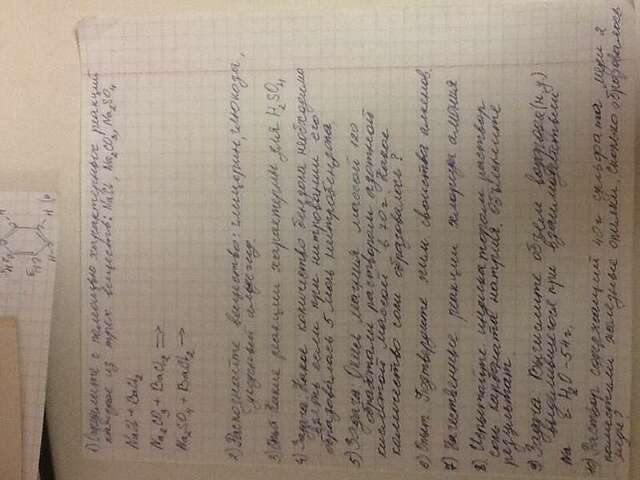 1) Определите с помощью характерных реакций
каждое из трех веществ: NaCl, Na₂CO₃, Na₂SO₄
NaCl + BaCl₂
Na₂CO₃ + BaCl₂ =>
Na₂SO₄ + BaCl₂ →
2) Распознайте вещество: глицерин, глюкоза,
уксусный альдегид.
3) Опыт Какие реакции характерны для H₂SO₄
4) Задача. Какое количество бензола необходимо
взять если при нитровании его
образовалось 5 моль нитробензола
5) Задача Окись магния массой 120
обработали раствором азотной
кислотой массой в 20г. Какое
количество соли образовалось?
6) Опыт. Подтвердите хим. свойства алкенов.
7) Качественные реакции хлорида амония
8) Испытайте индикатором раствор
соль карбоната натрия. Объясните
результат.
9) Задача. Вычислите объем водорода (н.у.)
выделившегося при взаимодействии
Na с H₂O - 54г.
10) Раствор содержащий 40г сульфата меди 2
поместили железные опилки. Сколько образовалось
меди?